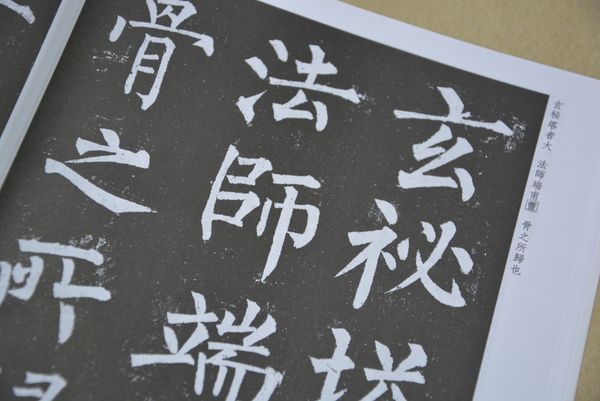 玄祕塔
法師端
骨之所
玄秘塔者大 法師端甫靈 骨之所歸也